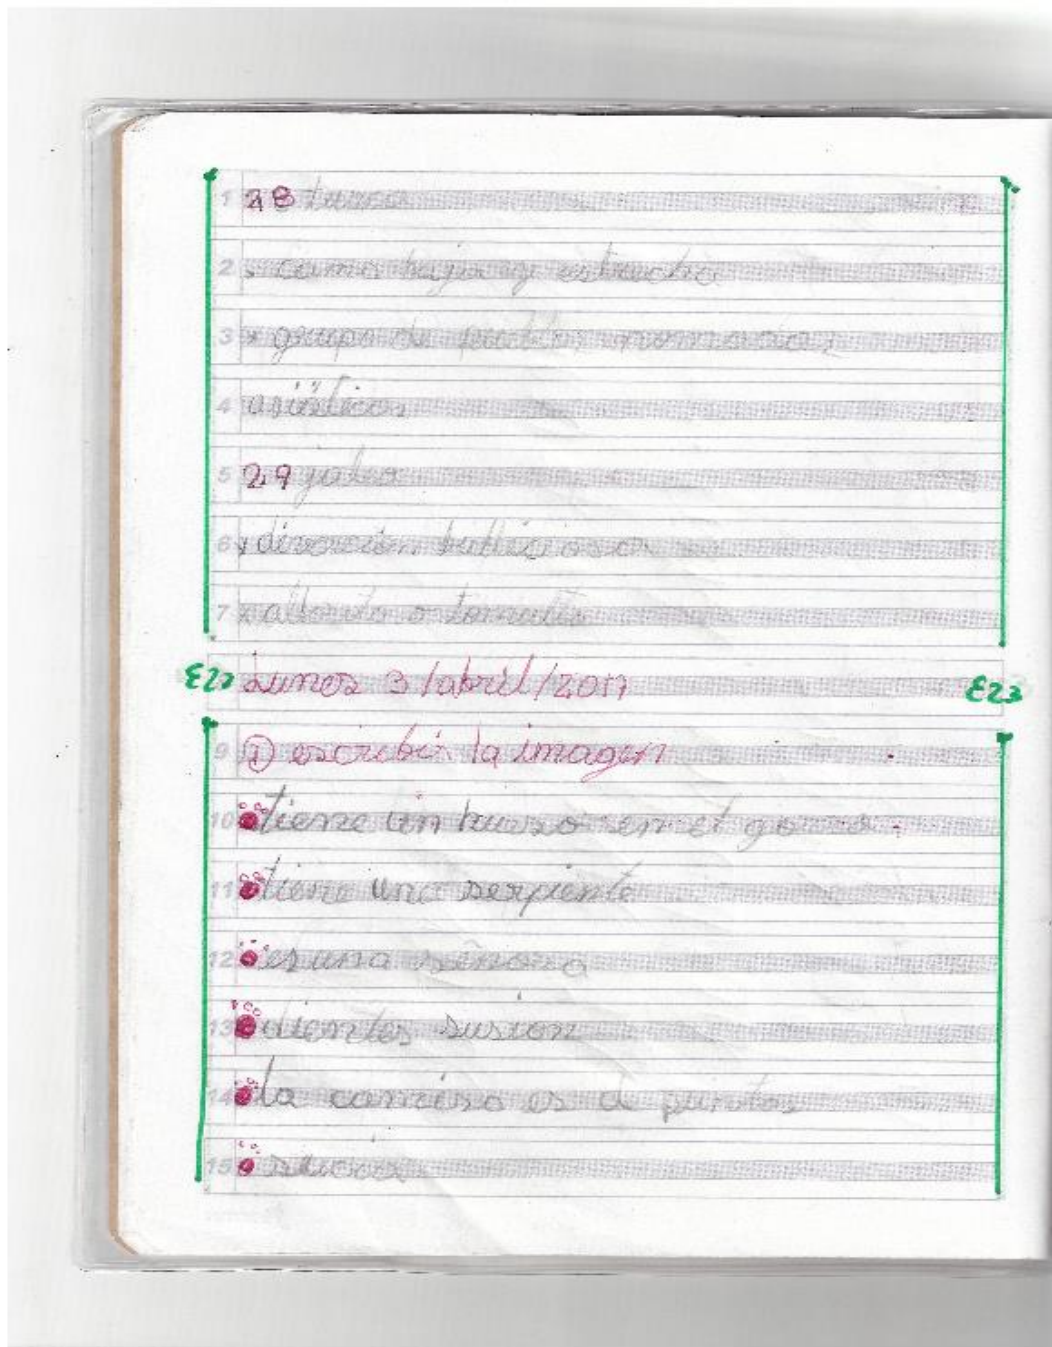 1 28 turca
2 x cama baja y estrecha
3 x grupo de pueblos nomadas
4 asiáticos
5 29 jaleo
6 x diversión bulliciosa
7 x alboroto o
E23 Lunes 3/abril/2017 E23
9 ① escribir la imagen
10 tiene un hueso en el
11 tiene una serpiente
12 es una señora
13 dientes
14 la camisa es d puntos
15